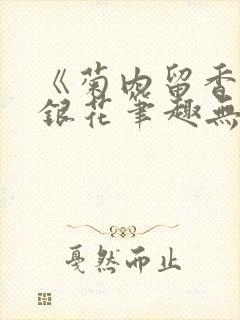 《菊内留香
銀花筆趣無
戛然而止